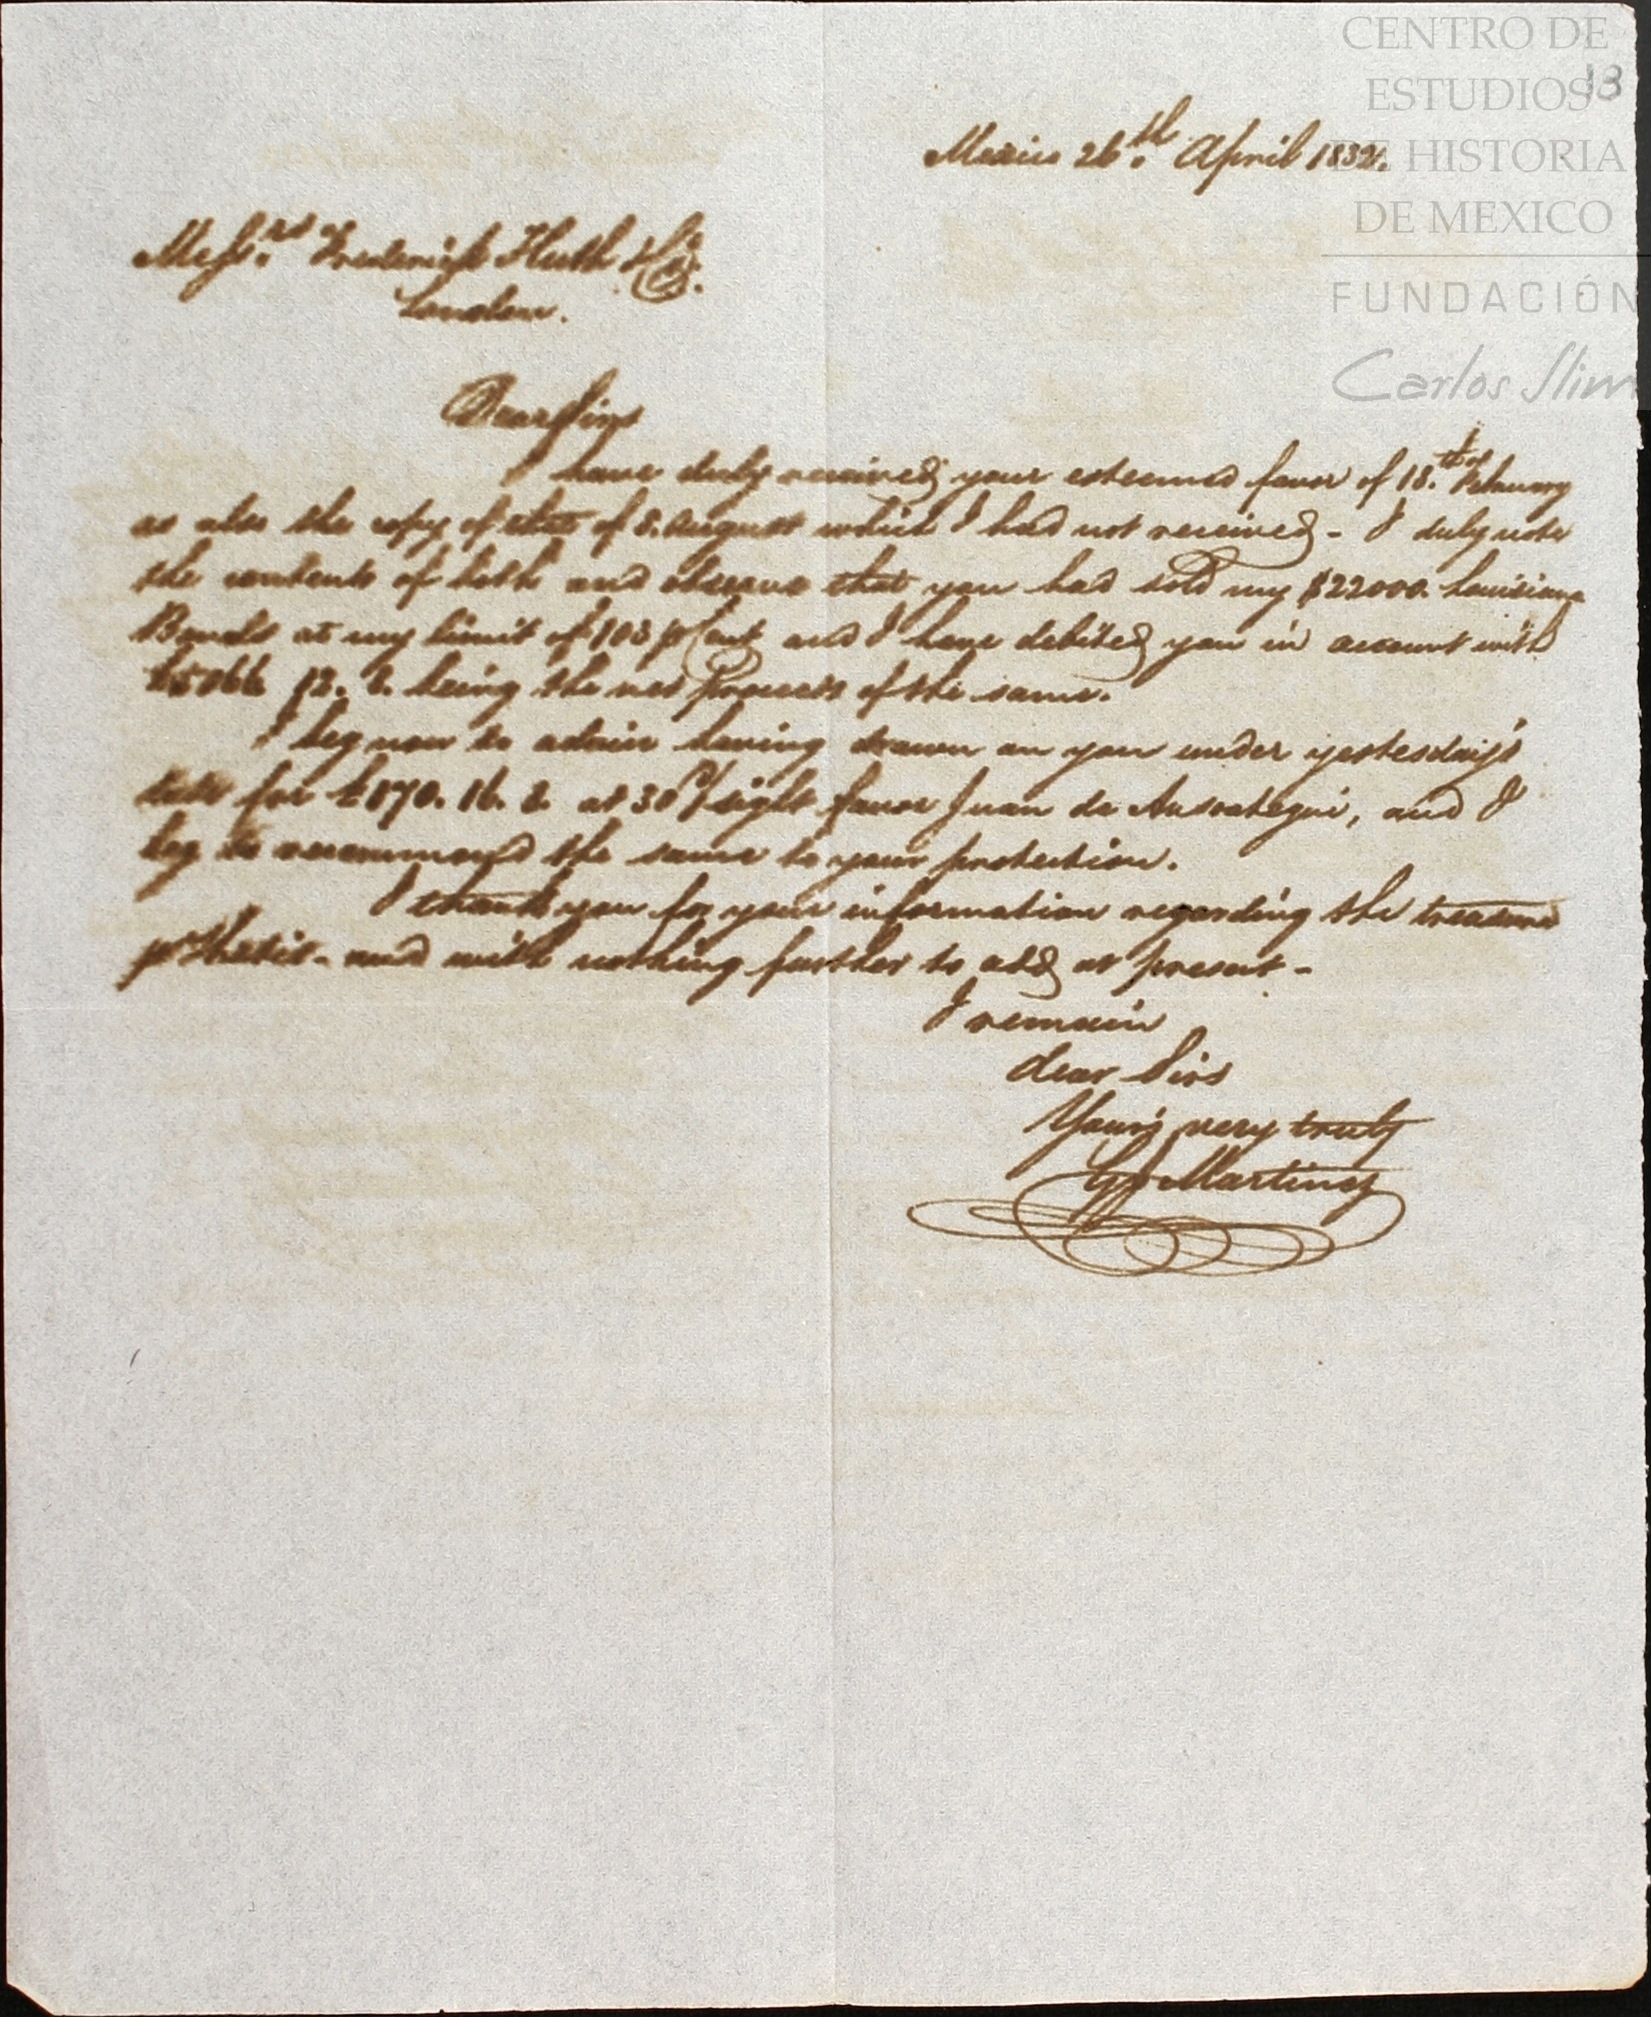 CENTRO DE
ESTUDIOS
DE HISTORIA
DE MEXICO
FUNDACIÓN
Carlos Slim
13
Mexico 26.th April 183
Mess.rs Frederick Huth & Co.
London.
Dear Sirs
I have duly received your esteemed favor of 18.th of February
as also the copy of that of 8. August which I had not received - I duly note
the contents of both and observe that you had sold my $22000. Louisiana
Bonds at my limit of 103 pr Cent and I have debited you in account with
12. 2. being the net proceeds of the same.
I beg now to advise having drawn on you under yesterday's
date for £170. 16. 2. at 30 d/sight favor Juan de, and I
beg to recommend the same to your protection.
I thank you for your information regarding the treasure
pr Thetis - and with nothing further to add at present -
I remain
dear Sirs
Yours very truly
Martinez